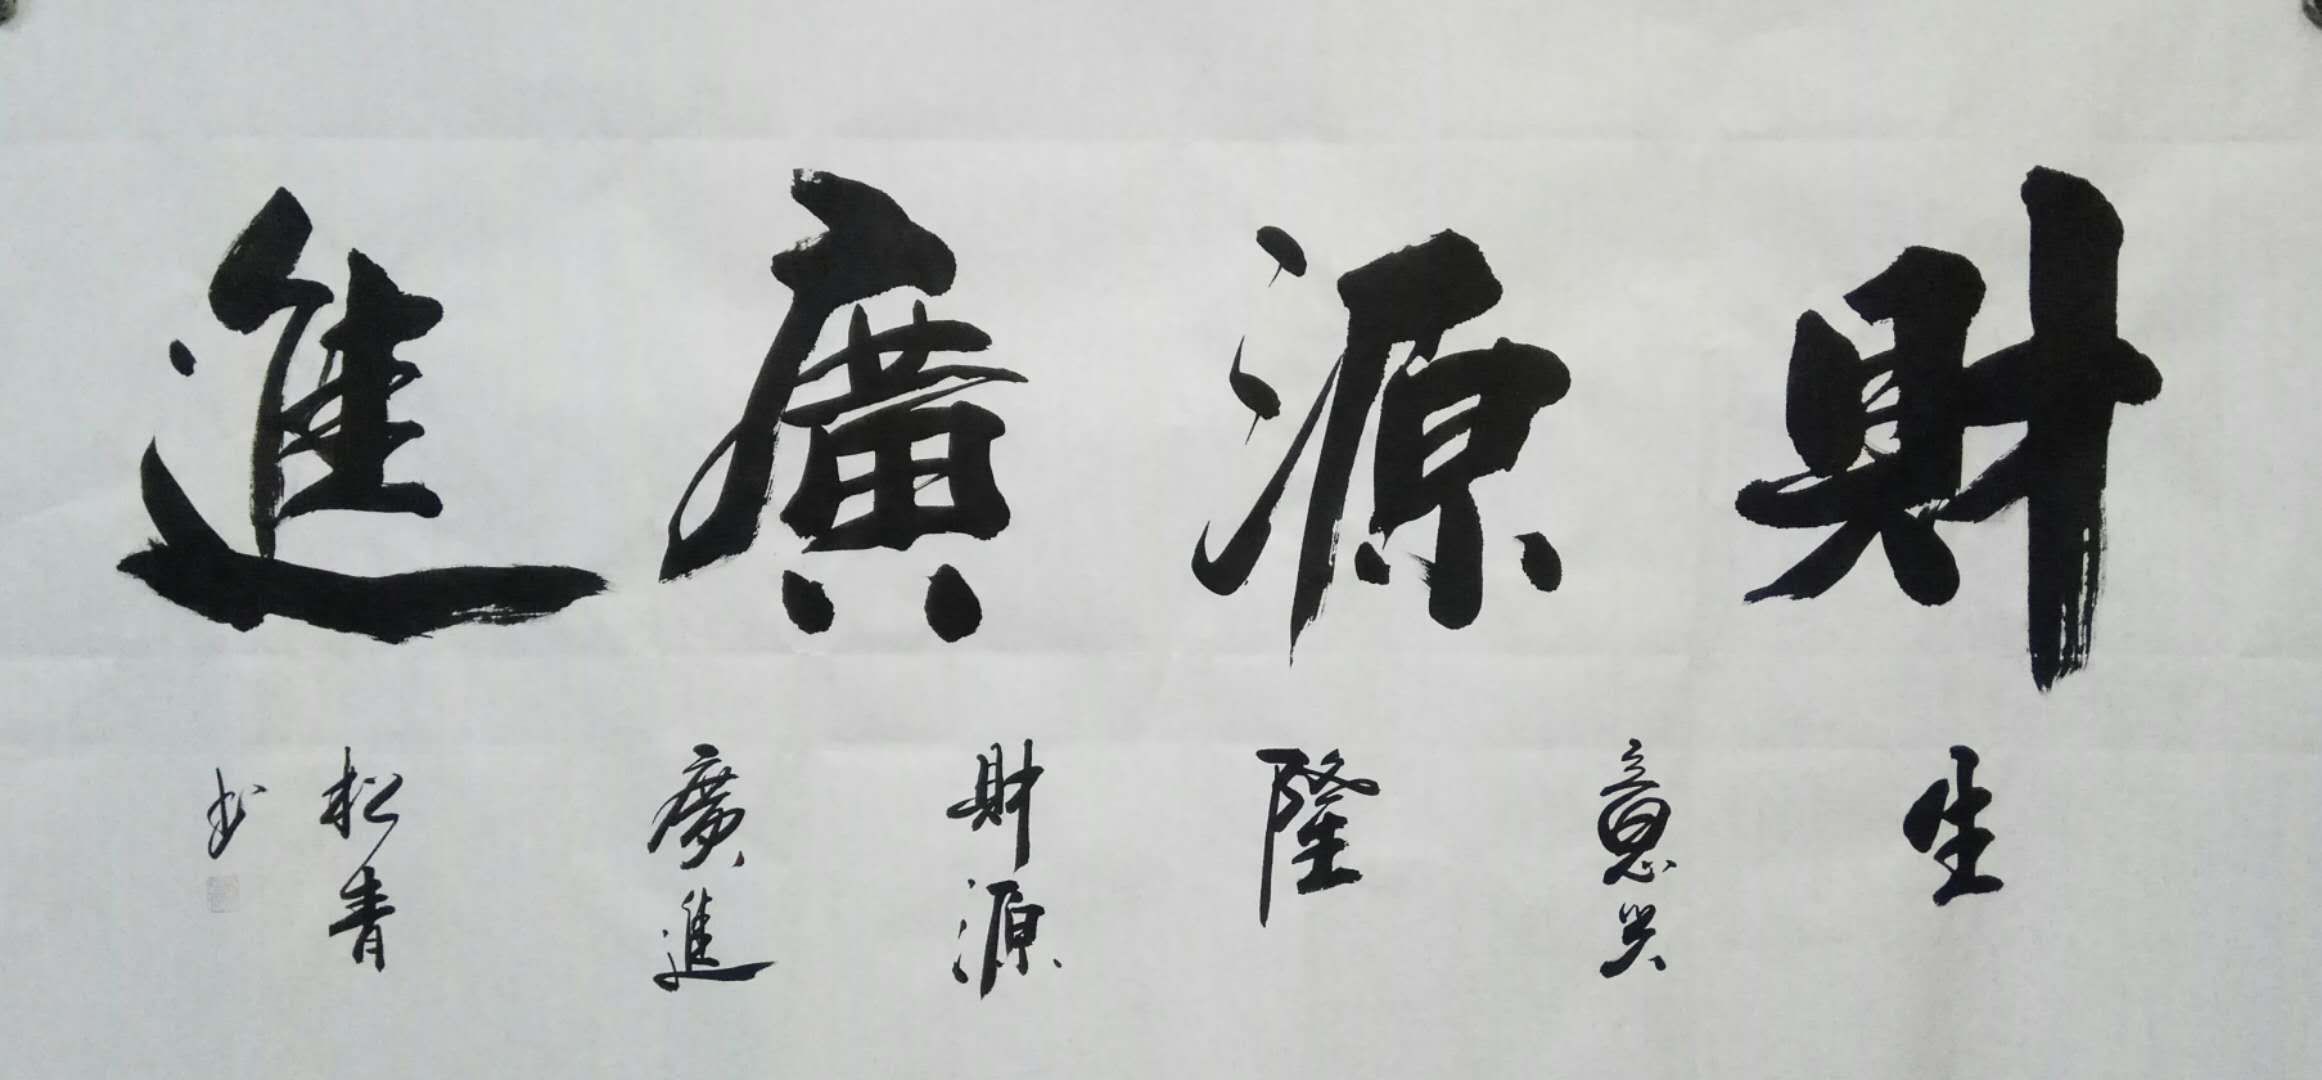 財源廣進
生
意兴
隆
財源
廣進
松青
书